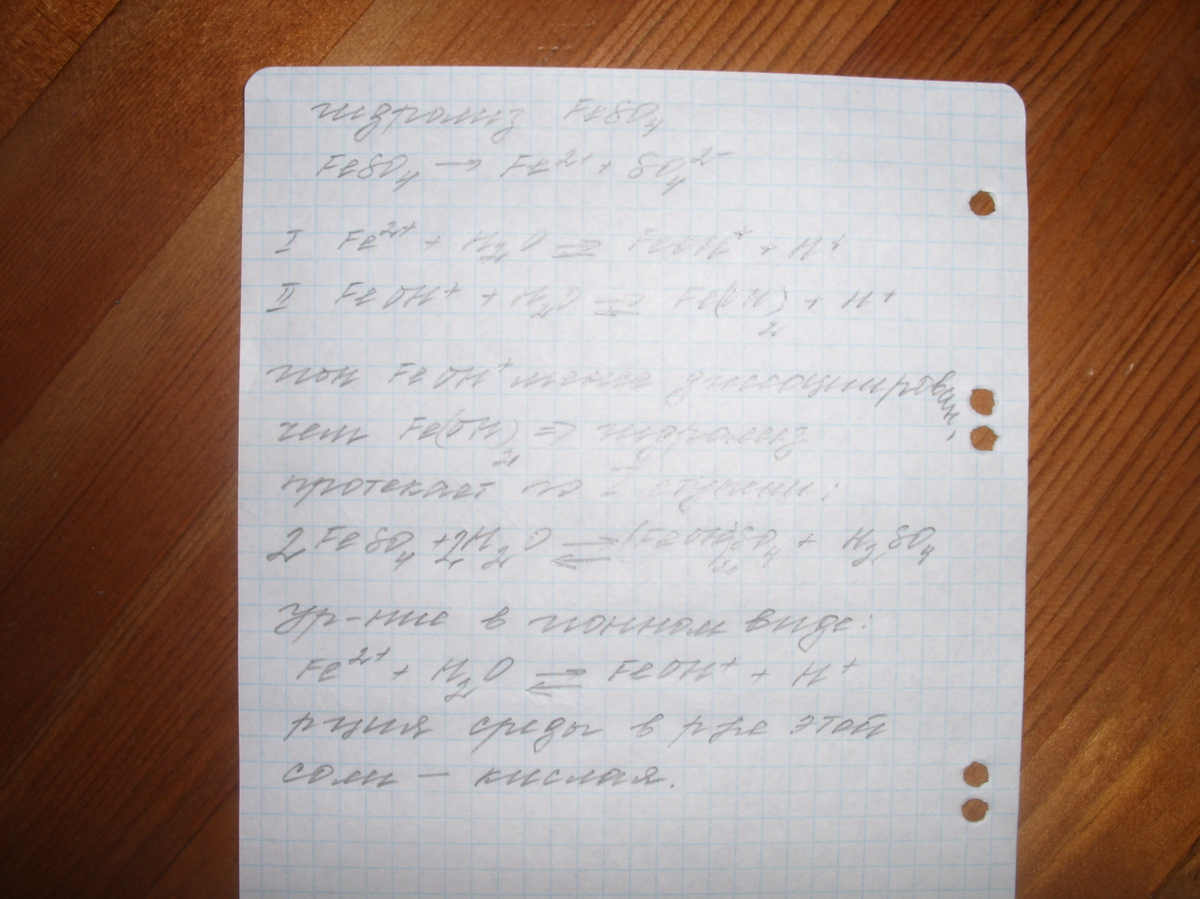 гидролиз FeSO₄
FeSO₄ → Fe²⁺ + SO₄²⁻
I Fe²⁺ + H₂O ⇌ FeOH⁺ + H⁺
II FeOH⁺ + H₂O ⇌ Fe(OH)₂ + H⁺
ион FeOH⁺ менее диссоциирован,
чем Fe(OH)₂ ⇒ гидролиз
протекает по I ступени:
2FeSO₄ + 2H₂O ⇌ (FeOH)₂SO₄ + H₂SO₄
ур-ние в ионном виде:
Fe²⁺ + H₂O ⇌ FeOH⁺ + H⁺
р-ция среды в р-ре этой
соли – кислая.